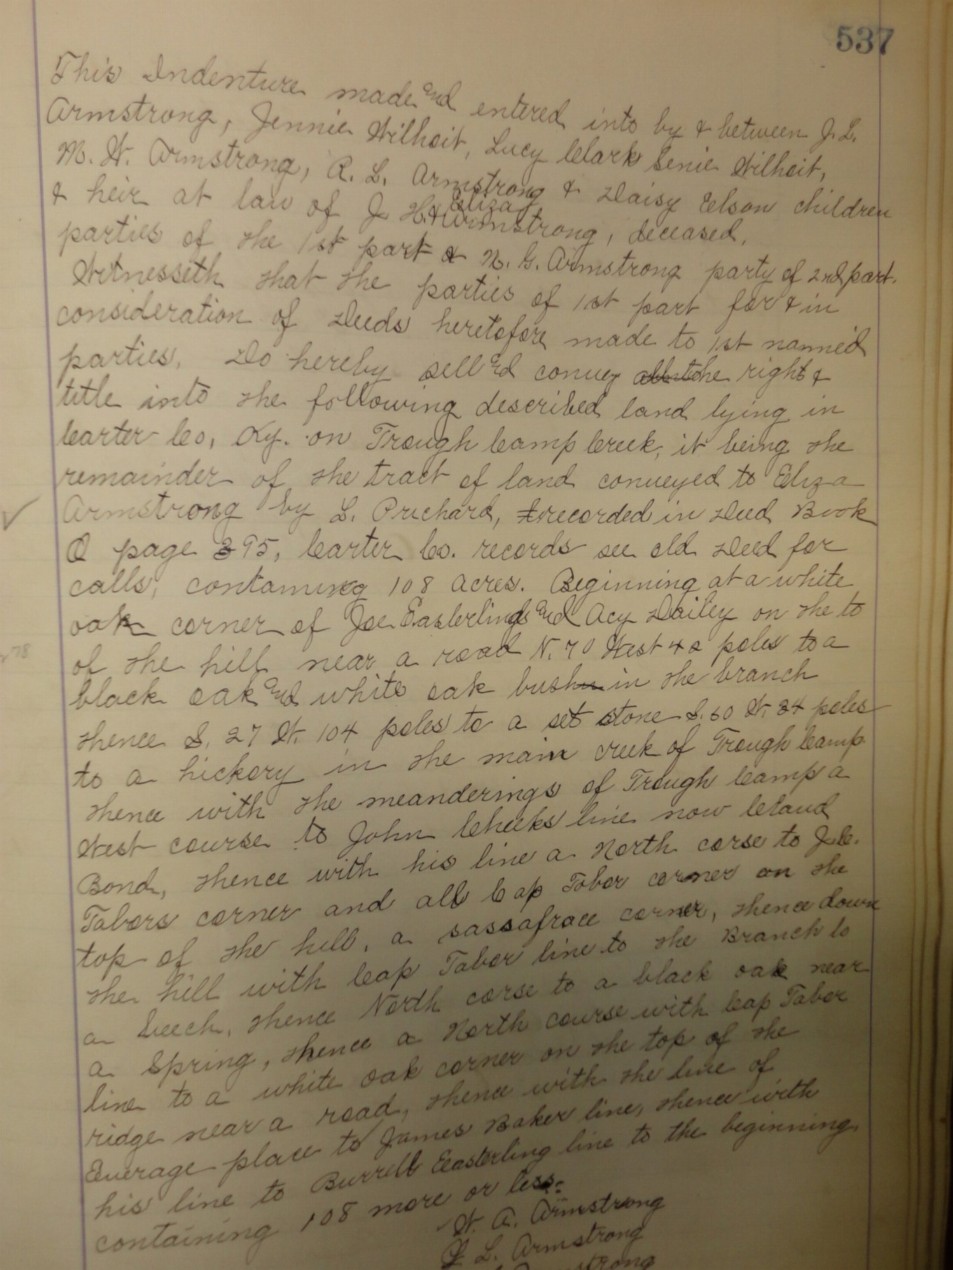 537
This Indenture made and entered into by & between J. L.
Armstrong, Jennie Wilhoit, Lucy Clark Genie Wilhoit,
M. W. Armstrong, R. L. Armstrong & Daisy Elson children
& heir at law of J H & Eliza Armstrong, deceased,
parties of the 1st part & N. G. Armstrong party of 2nd part.
Witnesseth that the parties of 1st part for & in
consideration of Deeds heretofore made to 1st named
parties, Do hereby sell and convey all the right &
title into the following described land lying in
Carter Co, Ky. on Trough Camp Creek, it being the
remainder of the tract of land conveyed to Eliza
Armstrong by L. Prichard, & recorded in Deed Book
Q page 395, Carter Co. records see old Deed for
calls, containing 108 acres. Beginning at a white
oak corner of Joe Easterlings and Acy Dailey on the to
of the hill near a road N. 70 West 42 poles to a
black oak and white oak bush in the branch
thence S. 27 W. 104 poles to a set stone S. 60 W. 34 poles
to a hickory in the main creek of Trough Camp
thence with the meanderings of Trough Camp a
West course to John Cheeks line now Claud
Bond, thence with his line a North corse to J. C.
Tabors corner and all Cap Tabor corner on the
top of the hill, a sassafrace corner, thence down
the hill with Cap Tabor line to the Branch to
a Beech, thence North corse to a black oak near
a Spring, thence a North course with Cap Tabor
line to a white oak corner on the top of the
ridge near a road, thence with the line of
Everage place to James Baker line, thence with
his line to Burrell Easterling line to the beginning
containing 108 more or less.
W. A. Armstrong
J. L. Armstrong
Armstrong